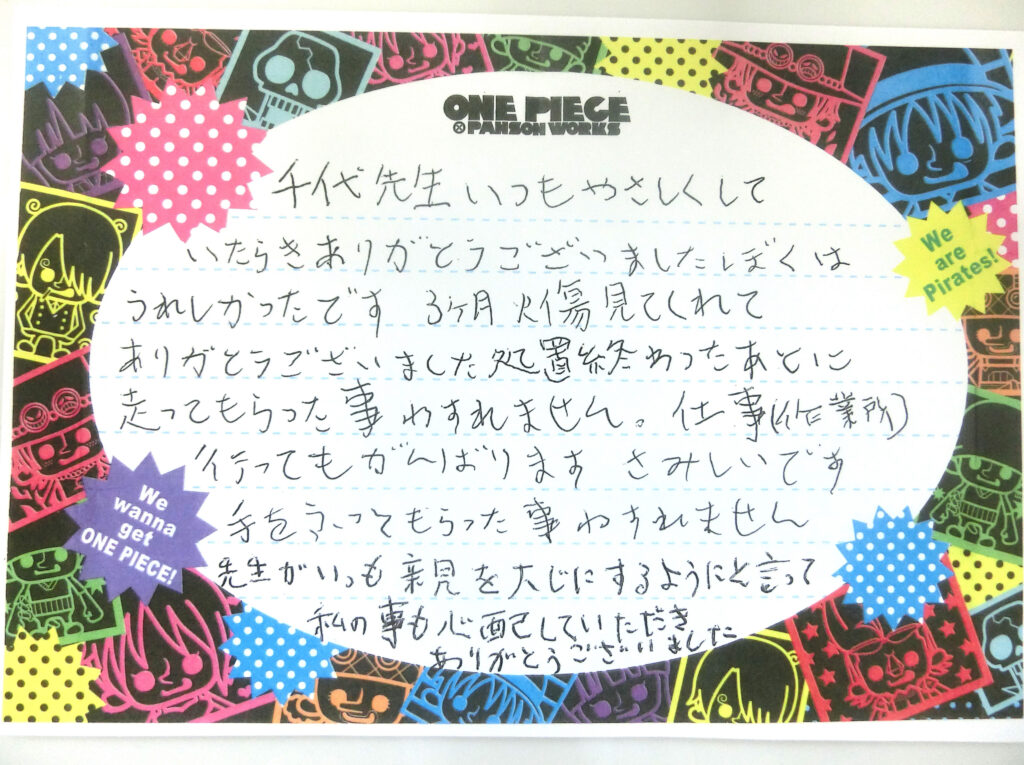 ONE PIECE
×PANSON WORKS
千代先生いつもやさしくして
いたらきありがとうございましたぼくは
うれしかったです 3ヶ月火傷見てくれて
ありがとうございました処置終わったあとに
走ってもらった事わすれません。仕事(作業所)
行ってもがんばります さみしいです
手をふってもらった事わすれません
先生がいつも親を大じにするようにと言って
私の事も心配していただき
ありがとうございました
We are Pirates!
We wanna get ONE PIECE!